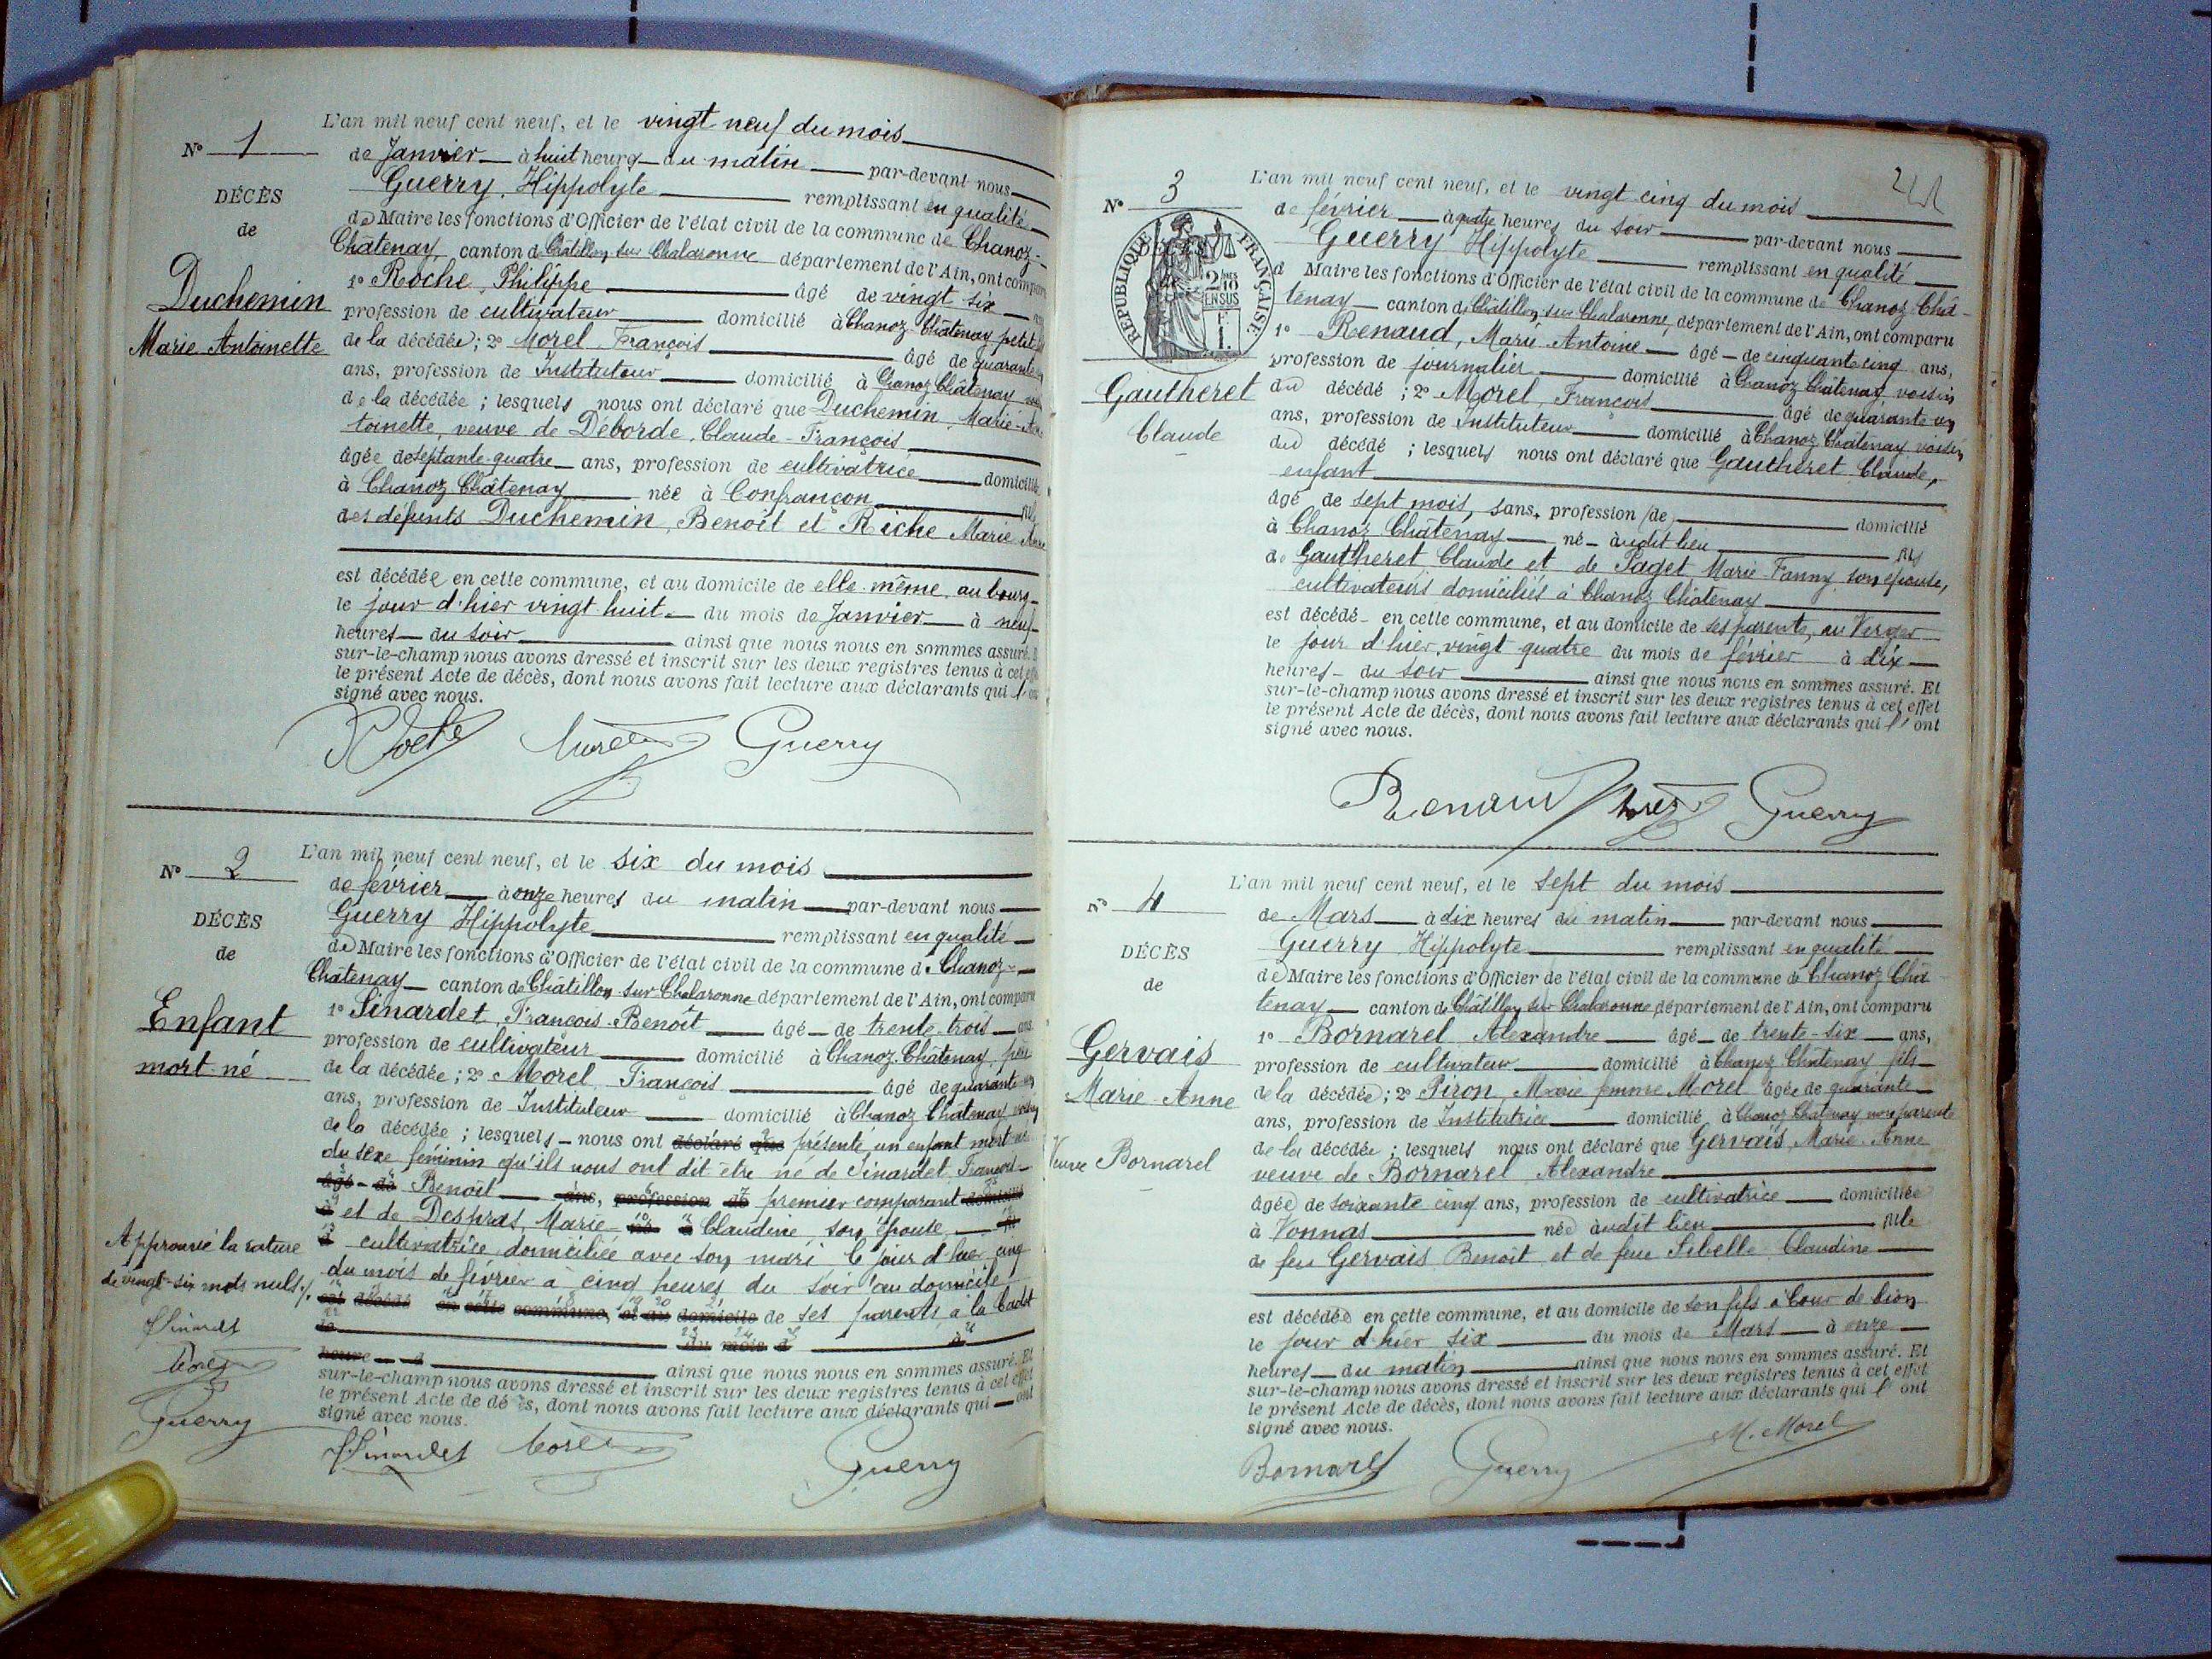 N° 1
DÉCÈS
de
Duchemin
Marie Antoinette
L'an mil neuf cent neuf, et le vingt neuf du mois
de Janvier à huit heures du matin par-devant nous
Guerry, Hippolyte remplissant en qualité
de Maire les fonctions d'Officier de l'état civil de la commune de Chanoz-
Châtenay, canton de Châtillon sur Chalaronne département de l'Ain, ont comparu
1° Roche, Philippe âgé de vingt six
profession de cultivateur domicilié à Chanoz-Châtenay petit
de la décédée; 2° Morel François âgé de quarante
ans, profession de Instituteur domicilié à Chanoz Châtenay
de la décédée; lesquels nous ont déclaré que Duchemin, Marie-An
toinette, veuve de Deborde, Claude-François
âgée de septante-quatre ans, profession de cultivatrice domiciliée
à Chanoz Châtenay née à Confrançon
des défunts Duchemin, Benoît et Riche Marie
est décédée en cette commune, et au domicile de elle-même, au bourg
le jour d'hier vingt huit du mois de Janvier à neuf
heures du soir ainsi que nous nous en sommes assuré.
sur-le-champ nous avons dressé et inscrit sur les deux registres tenus à cet effet
le présent Acte de décès, dont nous avons fait lecture aux déclarants qui l'ont
signé avec nous.
Roche Morel Guerry
N° 2
DÉCÈS
de
Enfant
mort-né
L'an mil neuf cent neuf, et le six du mois
de février à onze heures du matin par-devant nous
Guerry Hippolyte remplissant en qualité
de Maire les fonctions d'Officier de l'état civil de la commune d Chanoz-
Châtenay canton de Châtillon sur Chalaronne département de l'Ain, ont comparu
1° Sinardet, François-Benoît âgé de trente-trois ans
profession de cultivateur domicilié à Chanoz-Châtenay, père
de la décédée; 2° Morel François âgé de quarante un
ans, profession de Instituteur domicilié à Chanoz Châtenay voisin
de la décédée; lesquels nous ont déclaré que présenté un enfant mort-né
du sexe féminin qu'ils nous ont dit être né de Sinardet, François-
âgé de Benoît ans, profession de premier comparant domicilié
à et de Despras, Marie- née à Claudine son épouse
cultivatrice domiciliée avec son mari le jour d'hier cinq
du mois de février à cinq heures du soir au domicile
est décédé en cette commune, et au domicile de ses parents, à la Cadot
le du mois d à
heure d ainsi que nous nous en sommes assuré. Et
sur-le-champ nous avons dressé et inscrit sur les deux registres tenus à cet effet
le présent Acte de décès, dont nous avons fait lecture aux déclarants qui ont
signé avec nous.
Approuvé la rature
de vingt-six mots nuls
Sinardet
Morel
Guerry
Sinardet Morel Guerry
241
N° 3
RÉPUBLIQUE FRANÇAISE
2/10
EN SUS
Gautheret
Claude
L'an mil neuf cent neuf, et le vingt cinq du mois
de février à quatre heures du soir par-devant nous
Guerry Hippolyte remplissant en qualité
d Maire les fonctions d'Officier de l'état civil de la commune de Chanoz-Châ-
tenay canton de Châtillon-sur-Chalaronne, département de l'Ain, ont comparu
1° Renaud, Marie-Antoine âgé de cinquante cinq ans,
profession de journalier domicilié à Chanoz Châtenay, voisin
du décédé; 2° Morel, François âgé de quarante un
ans, profession de Instituteur domicilié à Chanoz Châtenay voisin
du décédé; lesquels nous ont déclaré que Gautheret, Claude,
enfant
âgé de sept mois, sans profession de domicilié
à Chanoz Châtenay né audit lieu fils
de Gautheret, Claude et de Paget Marie-Fanny son épouse,
cultivateurs domiciliés à Chanoz Châtenay
est décédé en cette commune, et au domicile de ses parents, au Verger
le jour d'hier, vingt quatre du mois de février à dix
heures du soir ainsi que nous nous en sommes assuré. Et
sur-le-champ nous avons dressé et inscrit sur les deux registres tenus à cet effet
le présent Acte de décès, dont nous avons fait lecture aux déclarants qui l'ont
signé avec nous.
Renaud Morel Guerry
N° 4
DÉCÈS
de
Gervais
Marie-Anne
Veuve Bornarel
L'an mil neuf cent neuf, et le sept du mois
de Mars à dix heures du matin par-devant nous
Guerry Hippolyte remplissant en qualité
de Maire les fonctions d'Officier de l'état civil de la commune de Chanoz Châ
tenay canton de Châtillon sur Chalaronne département de l'Ain, ont comparu
1° Bornarel Alexandre âgé de trente-six ans,
profession de cultivateur domicilié à Chanoz Châtenay fils
de la décédée; 2° Piron, Marie femme Morel âgée de quarante
ans, profession de Institutrice domicilié à Chanoz Châtenay non parente
de la décédée; lesquels nous ont déclaré que Gervais, Marie-Anne
veuve de Bornarel Alexandre
âgée de soixante cinq ans, profession de cultivatrice domiciliée
à Vonnas née audit lieu fille
de feu Gervais Benoît et de feue Sibelle Claudine
est décédée en cette commune, et au domicile de son fils à Cour de lion
le jour d'hier six du mois de Mars à onze
heures du matin ainsi que nous nous en sommes assuré. Et
sur-le-champ nous avons dressé et inscrit sur les deux registres tenus à cet effet
le présent Acte de décès, dont nous avons fait lecture aux déclarants qui l'ont
signé avec nous.
Bornarel Guerry M. Morel